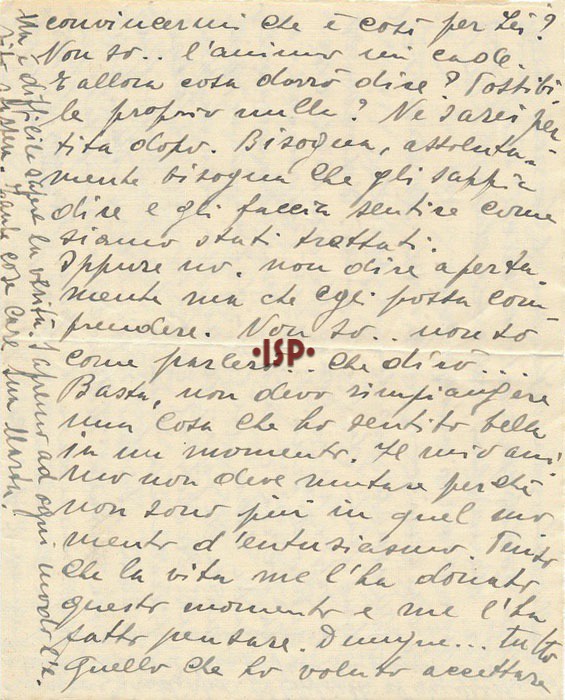 convincermi che è così per Lei?
Non so.. l'animo mi cade.
E allora cosa dovrò dire? Possibi-
le proprio nulla? Ne sarei pen-
tita dopo. Bisogna, assoluta-
mente bisogna che gli sappia
dire e gli faccia sentire come
siamo stati trattati.
Oppure no. non dire aperta-
mente ma che egli possa com-
prendere. Non so.. non so
come parlerò... che dirò...
•ISP•
Basta, non devo rimpiangere
una cosa che ho sentito bella
in un momento. Il mio ani-
mo non deve mutare perchè
non sono più in quel mo
mento d'entusiasmo. Tutto
che la vita me l'ha donato
questo momento e me l'ha
fatto pensare. Dunque... tutto
quello che ho voluto accettare
è difficile sapere la verità. Sapremo ad ogni modo l'e-
Tante cose care Sua Maria.